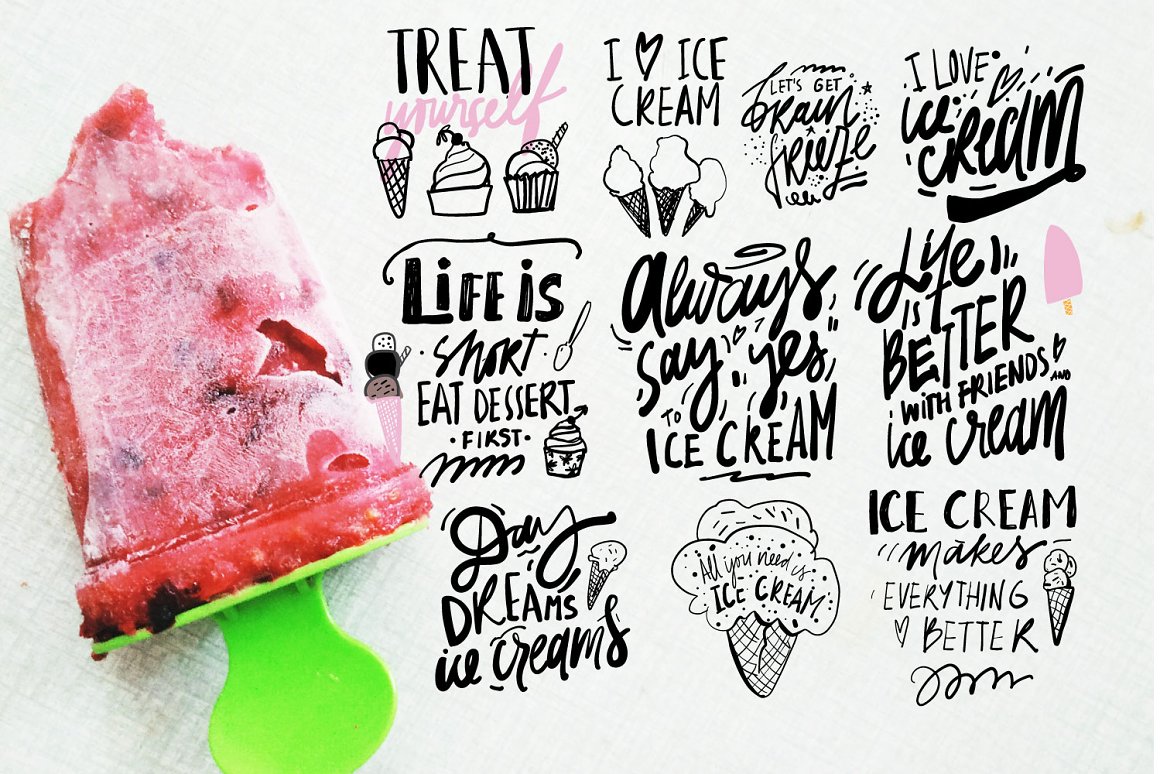 TREAT
yourself
I ♡ ICE
CREAM
LET'S GET
brain
freeze
I LOVE
ice
CREAM
LIFE IS
SHORT
EAT DESSERT
FIRST
Always
say "yes"
TO
ICE CREAM
Life
IS
BETTER
WITH FRIENDS
AND
ice cream
Day
DREAMS
ice creams
All you need is
ICE CREAM
ICE CREAM
makes
EVERYTHING
BETTER